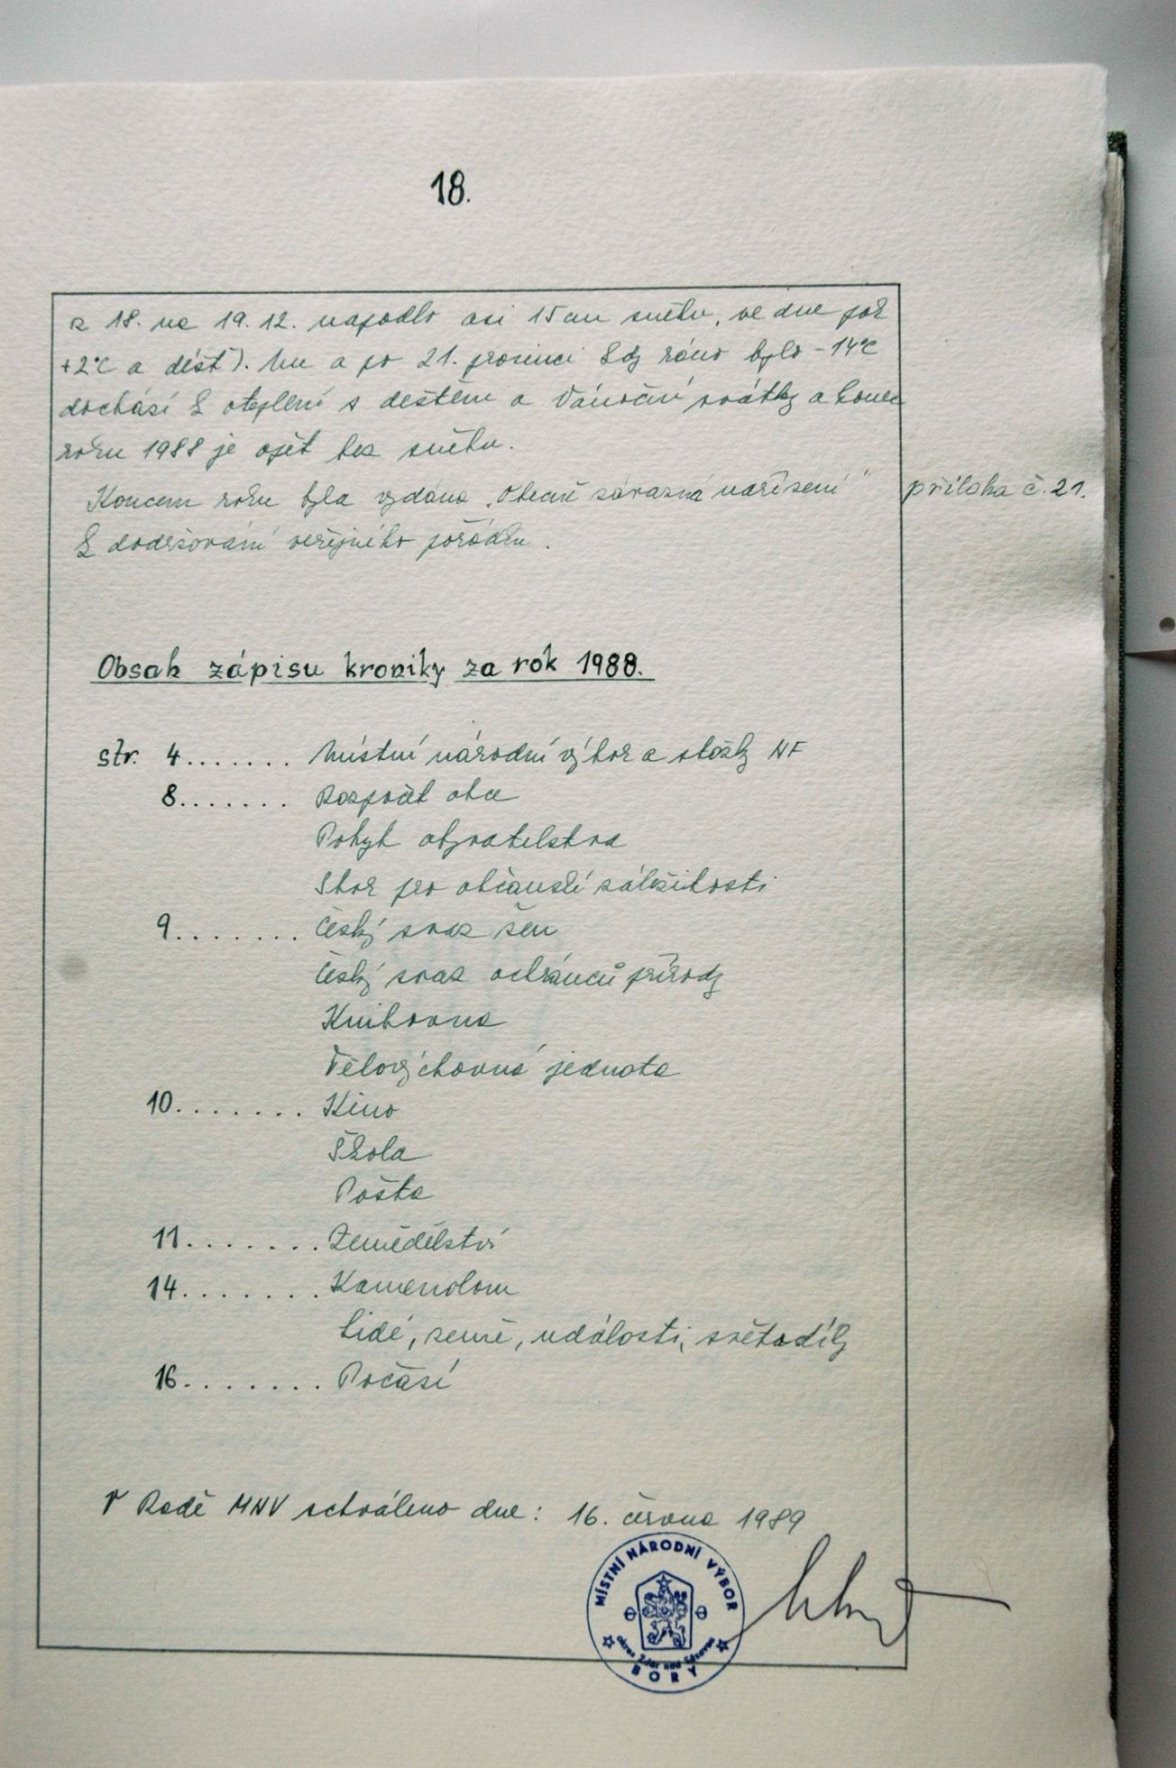 18.
z 18. na 19.12. napadlo asi 15 cm sněhu, ve dne pak
+2°C a déšť). Tu a po 21. prosinci kdy ráno bylo -14°C
dochází k oteplení s deštěm a Vánoční svátky a konec
roku 1988 je opět bez sněhu.
Koncem roku byla vydána „Obecně závazná nařízení" příloha č. 21.
k dodržování veřejného pořádku.
Obsah zápisu kroniky za rok 1988.
str. 4....... Místní národní výbor a složky NF
8....... Rozpočet obce
Pohyb obyvatelstva
Sbor pro občanské záležitosti
9....... Český svaz žen
Český svaz ochránců přírody
Knihovna
Tělovýchovná jednota
10....... Kino
Škola
Pošta
11....... Zemědělství
14....... Kamenolom
Lidé, země, události, světadíly
16....... Počasí
V Radě MNV schváleno dne: 16. června 1989
MÍSTNÍ NÁRODNÍ VÝBOR
okres Žďár nad Sázavou
BORY